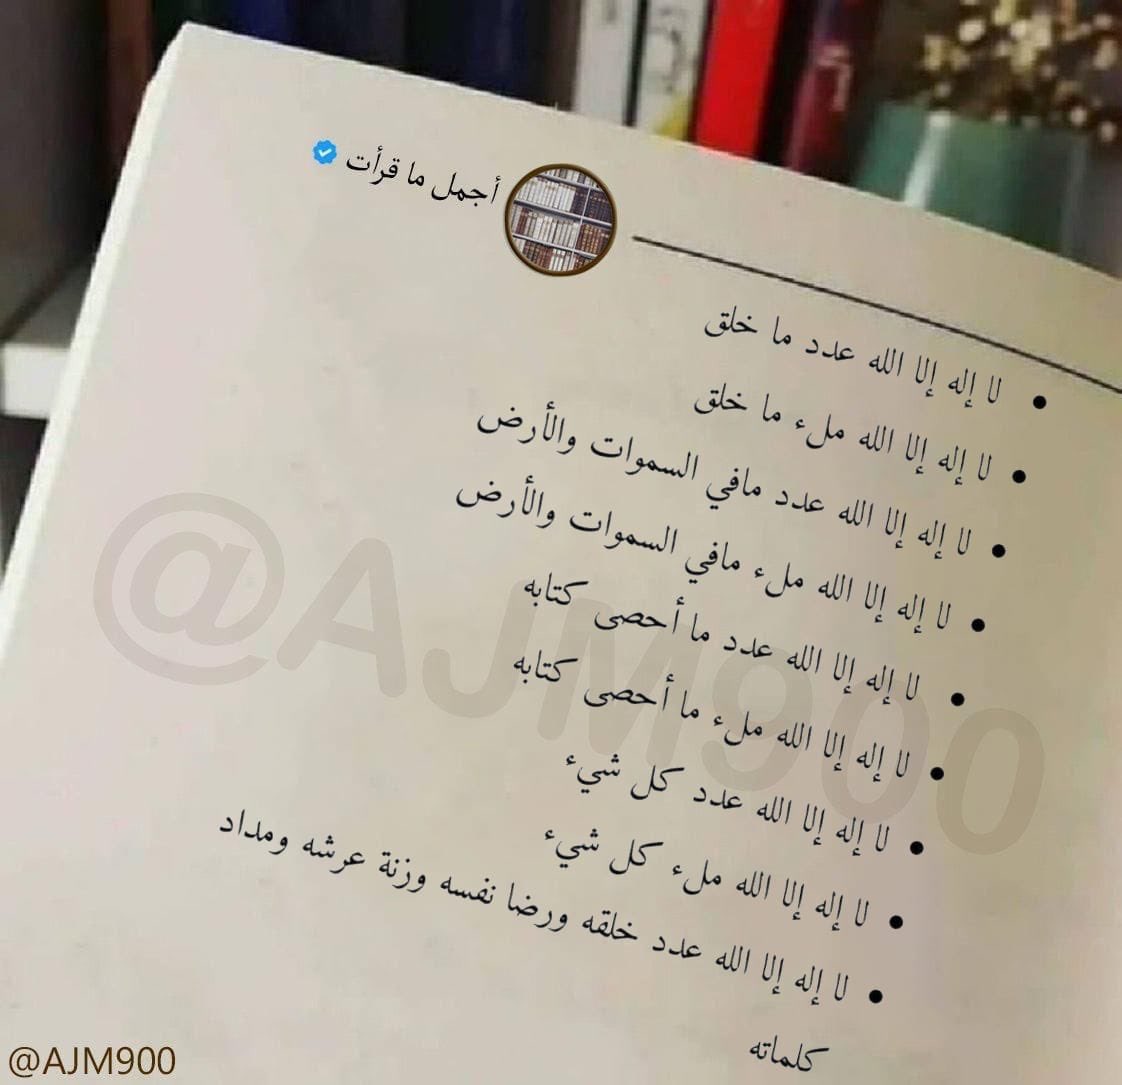 أجمل ما قرأت
• لا إله إلا الله عدد ما خلق
• لا إله إلا الله ملء ما خلق
• لا إله إلا الله عدد مافي السموات والأرض
• لا إله إلا الله ملء مافي السموات والأرض
• لا إله إلا الله عدد ما أحصى كتابه
• لا إله إلا الله ملء ما أحصى كتابه
• لا إله إلا الله عدد كل شيء
• لا إله إلا الله ملء كل شيء
• لا إله إلا الله عدد خلقه ورضا نفسه وزنة عرشه ومداد
كلماته
@AJM900
@AJM900